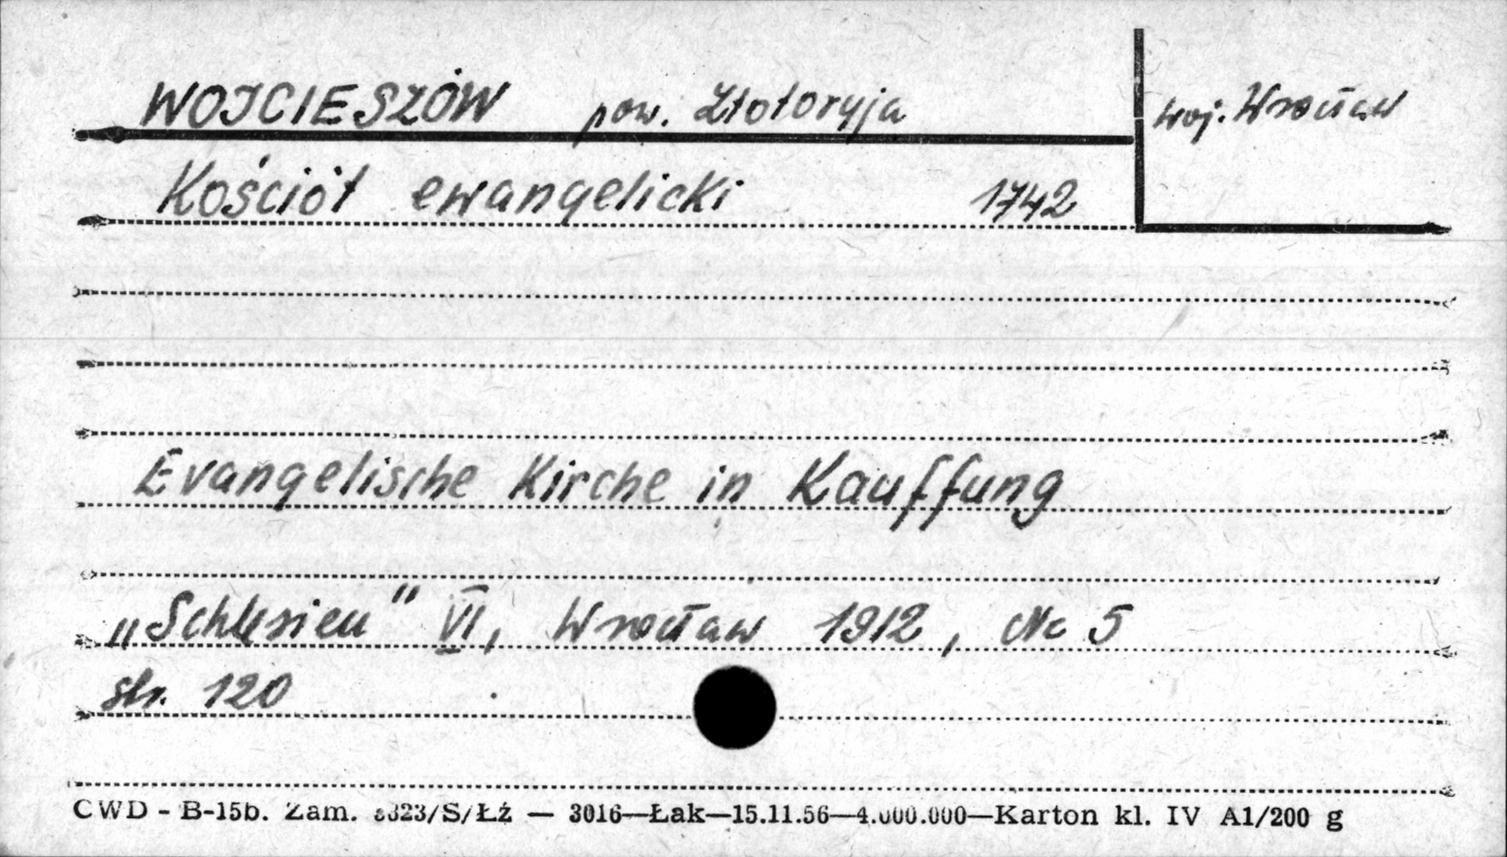 WOJCIESZÓW pow. Złotoryja woj. Wrocław
Kościół ewangelicki 1742
Evangelische Kirche in Kauffung
„Schlesien" VI, Wrocław 1912, Nr 5
str. 120
CWD - B-15b. Zam. 8323/S/ŁŻ — 3016—Łak—15.11.56—4.000.000—Karton kl. IV A1/200 g